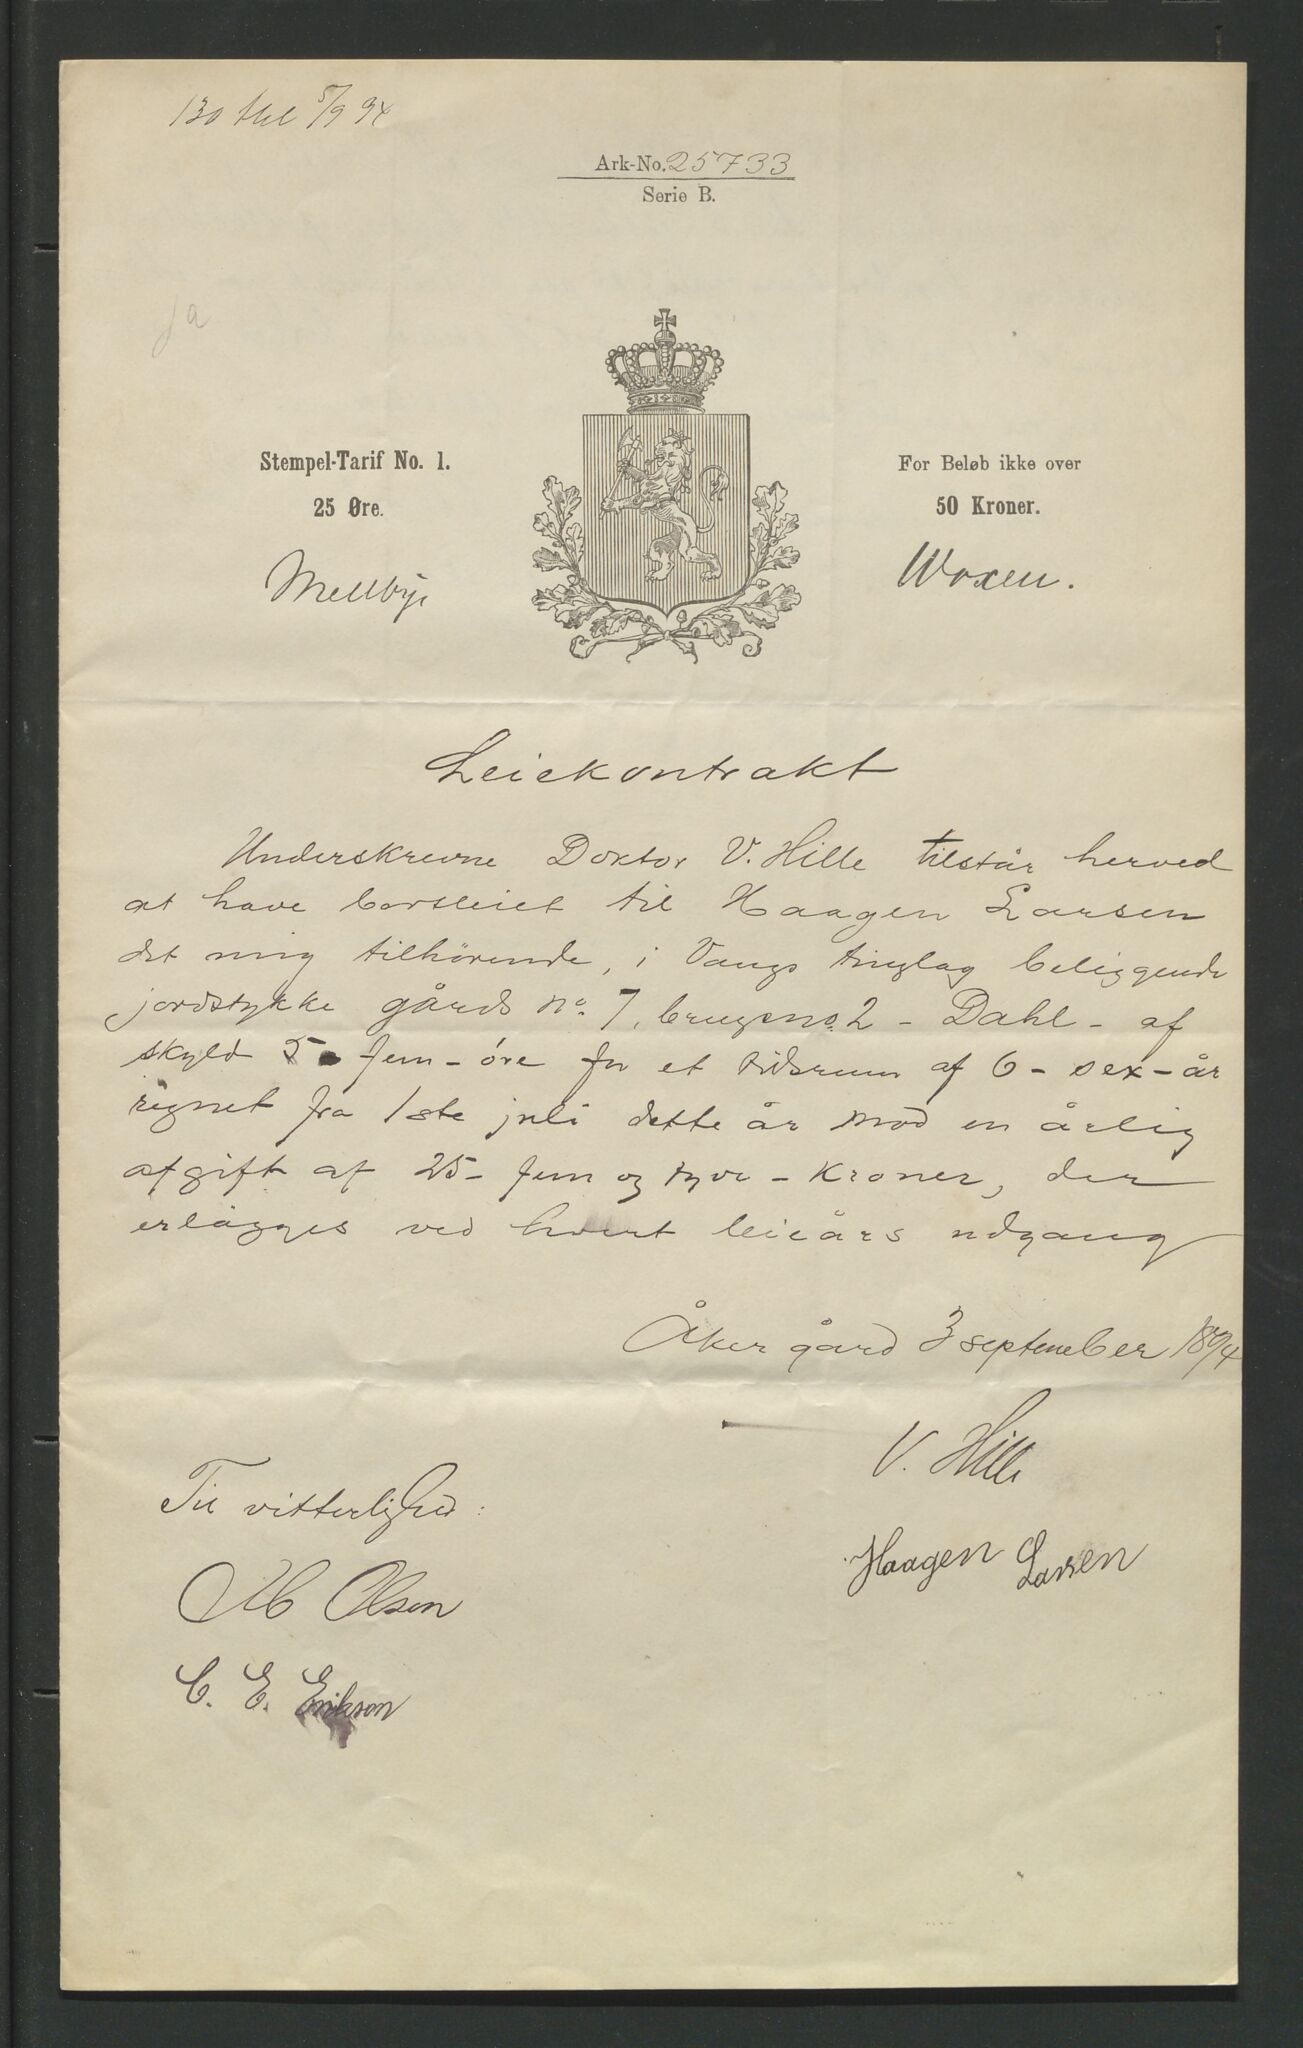 130 Hel 5/9 94
Ark-No. 25733
Serie B.
ja
Stempel-Tarif No. 1.
25 Øre.
For Beløb ikke over
50 Kroner.
Mellbye
Woxen.
Leiekontrakt
Underskrevne Doktor V. Hille tilstår herved
at have bortleiet til Haagen Larsen
det mig tilhørende, i Vangs tinglag beliggende
jordstykke gårds no. 7, brugsno. 2 - Dahl - af
skyld 5 fem - øre for et tidsrum af 6 - sex - år
regnet fra 1ste juli dette år mod en årlig
afgift af 25 - fem og tyve - kroner, der
erlægges ved hvert leieårs udgang
Åker gård 3 september 1894
V. Hille
Haagen Larsen
Til vitterlighed:
Olsen
C. E. Erikson